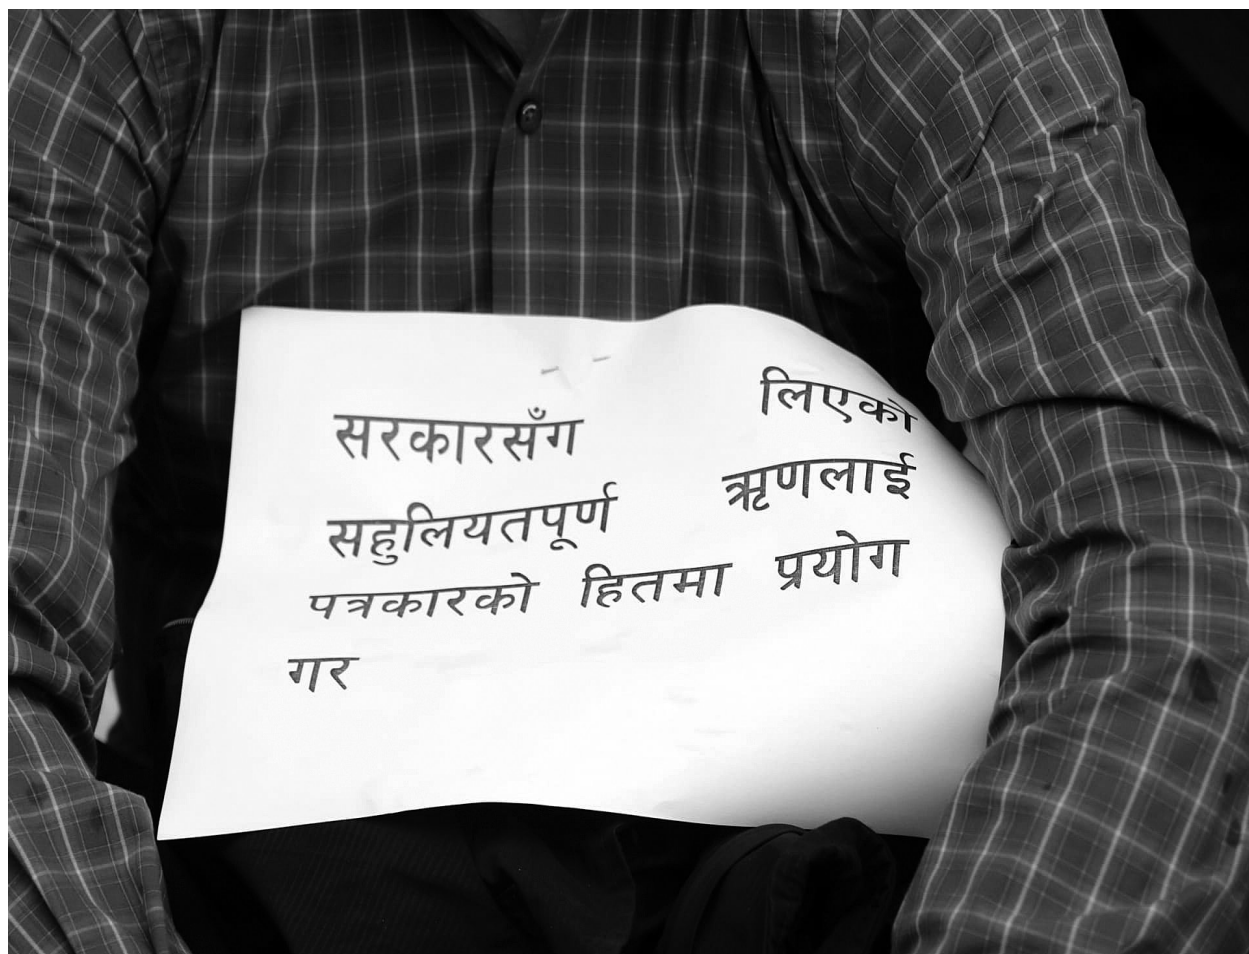 सरकारसँग लिएको
सहुलियतपूर्ण ऋणलाई
पत्रकारको हितमा प्रयोग
गर